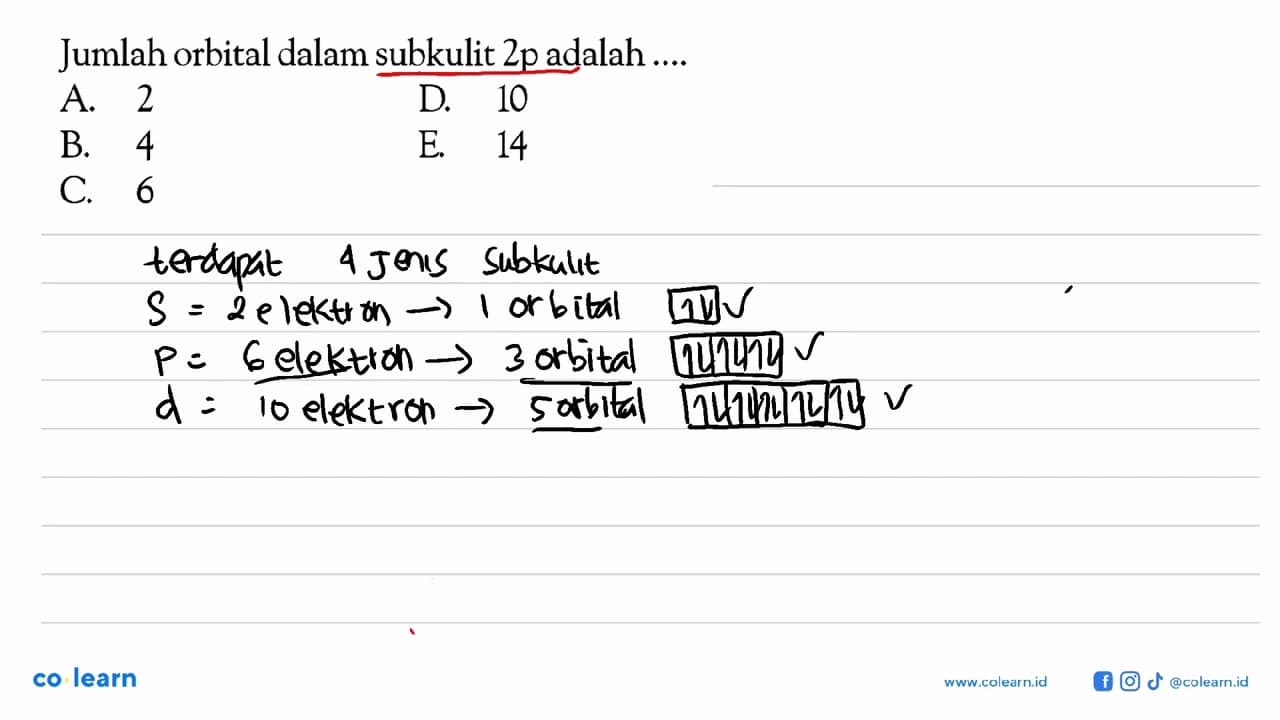 Jumlah orbital dalam subkulit 2p adalah ....
A. 2 D. 10
B. 4 E. 14
C. 6
terdapat 4 jenis subkulit
S = 2 elektron → 1 orbital 1L ✓
P = 6 elektron → 3 orbital 1L 1L 1L ✓
d = 10 elektron → 5 orbital 1L 1L 1L 1L 1L ✓
co learn
www.colearn.id @colearn.id